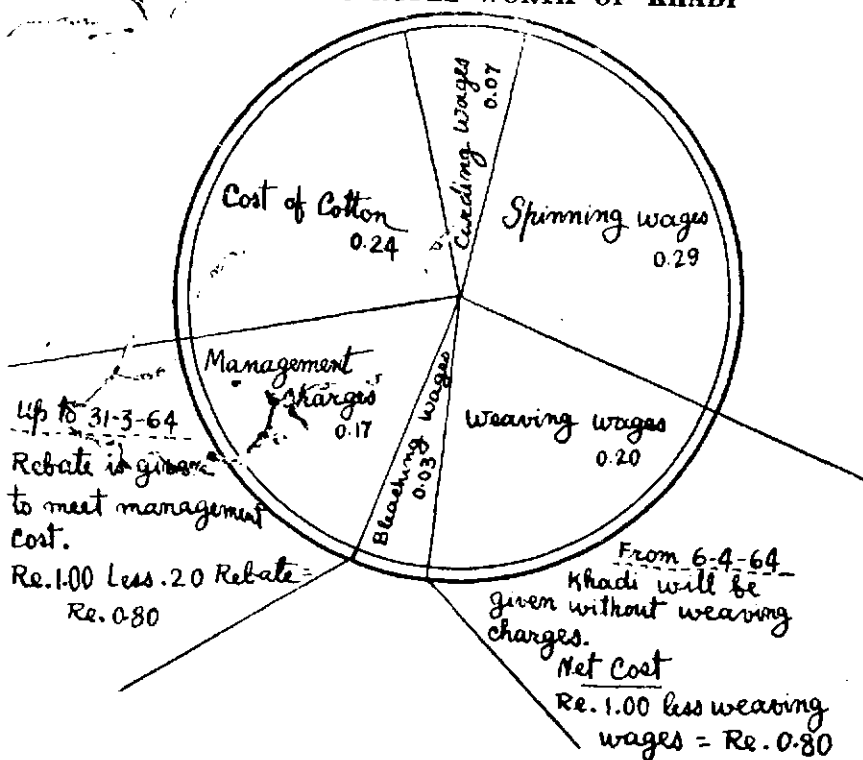 WORTH OF KHADI
Carding wages
0.07
Cost of Cotton
0.24
Spinning wages
0.29
Management
charges
0.17
Bleaching wages
0.03
Weaving wages
0.20
Up to 31-3-64
Rebate is given
to meet management
Cost.
Re.1.00 Less .20 Rebate =
Re. 0.80
From 6-4-64
Khadi will be
given without weaving
charges.
Net Cost
Re. 1.00 less weaving
wages = Re. 0.80